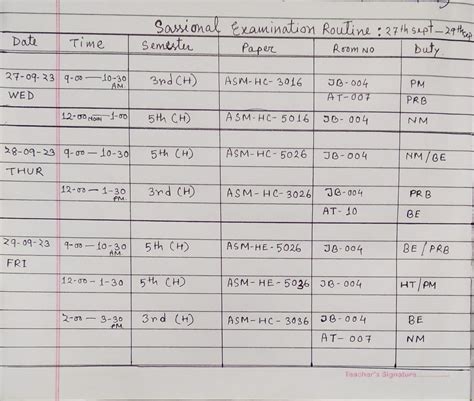 Sassional Examination Routine : 27th sept - 29th sep
Date Time Semester Paper Room No Duty
27-09-23 9-00 — 10-30 AM 3rd (H) ASM-HC-3016 JB-004 PM
WED AT-007 PRB
12-00 NOON - 1-00 5th (H) ASM-HC-5016 JB-004 NM
28-09-23 9-00 — 10-30 5th (H) ASM-HC-5026 JB-004 NM/BE
THUR
12-00 — 1-30 PM 3rd (H) ASM-HC-3026 JB-004 PRB
AT-10 BE
29-09-23 9-00 — 10-30 AM 5th (H) ASM-HE-5026 JB-004 BE / PRB
FRI
12-00 - 1-30 5th (H) ASM-HE-5036 JB-004 HT/PM
2-00 — 3-30 PM 3rd (H) ASM-HC-3036 JB-004 BE
AT-007 NM
Teacher's Signature